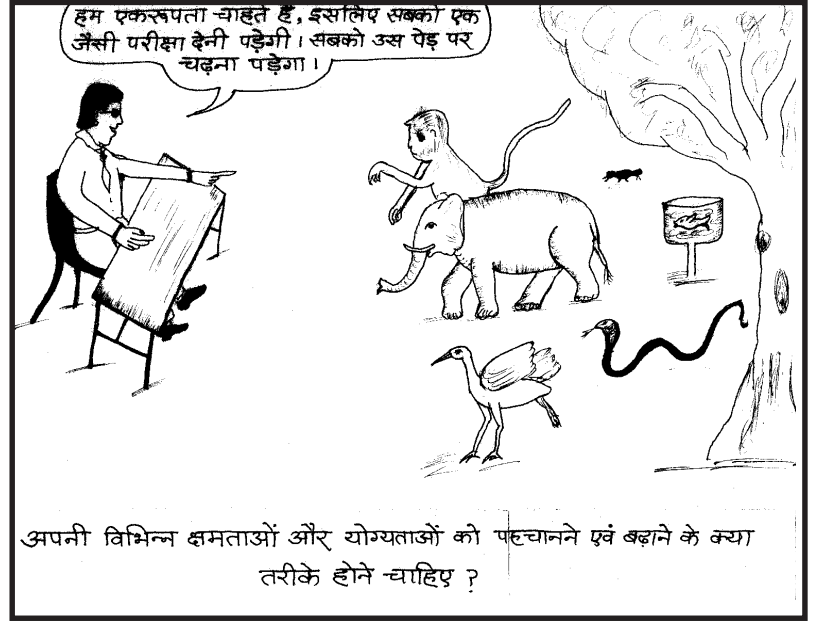 हम एकरूपता चाहते हैं, इसलिए सबको एक
जैसी परीक्षा देनी पड़ेगी। सबको उस पेड़ पर
चढ़ना पड़ेगा।
अपनी विभिन्न क्षमताओं और योग्यताओं को पहचानने एवं बढ़ाने के क्या
तरीके होने चाहिए ?